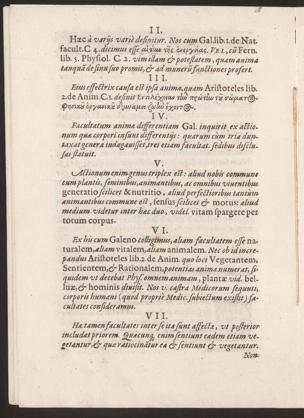 II.
Hæc à varijs variè definitur. Nos cum Gal. lib. 1. de Nat.
facult. C. 4. dicimus esse αἰτίαν τῆς ἐνεργήας. Vel, cū Fern.
lib. 5. Physiol. C. 2. vim illam & potestatem, quam anima
tanquā de sinu suo promit, & ad munerū functiones profert.
III.
Eius effectrix causa est ipsa anima, quam Aristoteles lib.
2. de Anim. C. 1. definit
IV.
Facultatum anima differentiam Gal. inquirit ex actio-
num quæ corpori insunt differentijs: quarum cùm tria dun-
taxat genera indagasset, tres etiam facultat. sedibus disclu-
sas statuit.
V.
Actionum enim genus triplex est: aliud nobis commune
cum plantis, seminibus, animantibus, ac omnibus viventibus
generatio scilicet & nutritio, aliud perfectioribus tantùm
animantibus commune est, sensus scilicet & motus: aliud
medium videtur inter hæc duo, videl. vitam spargere per
totum corpus.
VI.
Ex his cum Galeno colligimus, aliam facultatem esse na-
turalem, aliam vitalem, aliam animalem. Nec ob id incre-
pandus Aristoteles lib. 2. de Anim. quo loci Vegetantem,
Sentientem, & Rationalem, potentias anima numerat, si-
quidem ut decebat Physc. omnem animam, plantæ vid. bel-
luæ, & hominis divisit. Nos v. castra Medicorum sequuti,
corporis humani (quod propriè Medic. subiectum existit) fa-
cultates consideramus.
VII.
Hæ tamen facultates inter se ita sunt affectæ, ut posterior
includat priorem. Quæcunq. enim sentiunt eadem etiam ve-
getantur, & quæ ratiocinatur ea & sentiunt & vegetantur.
Non